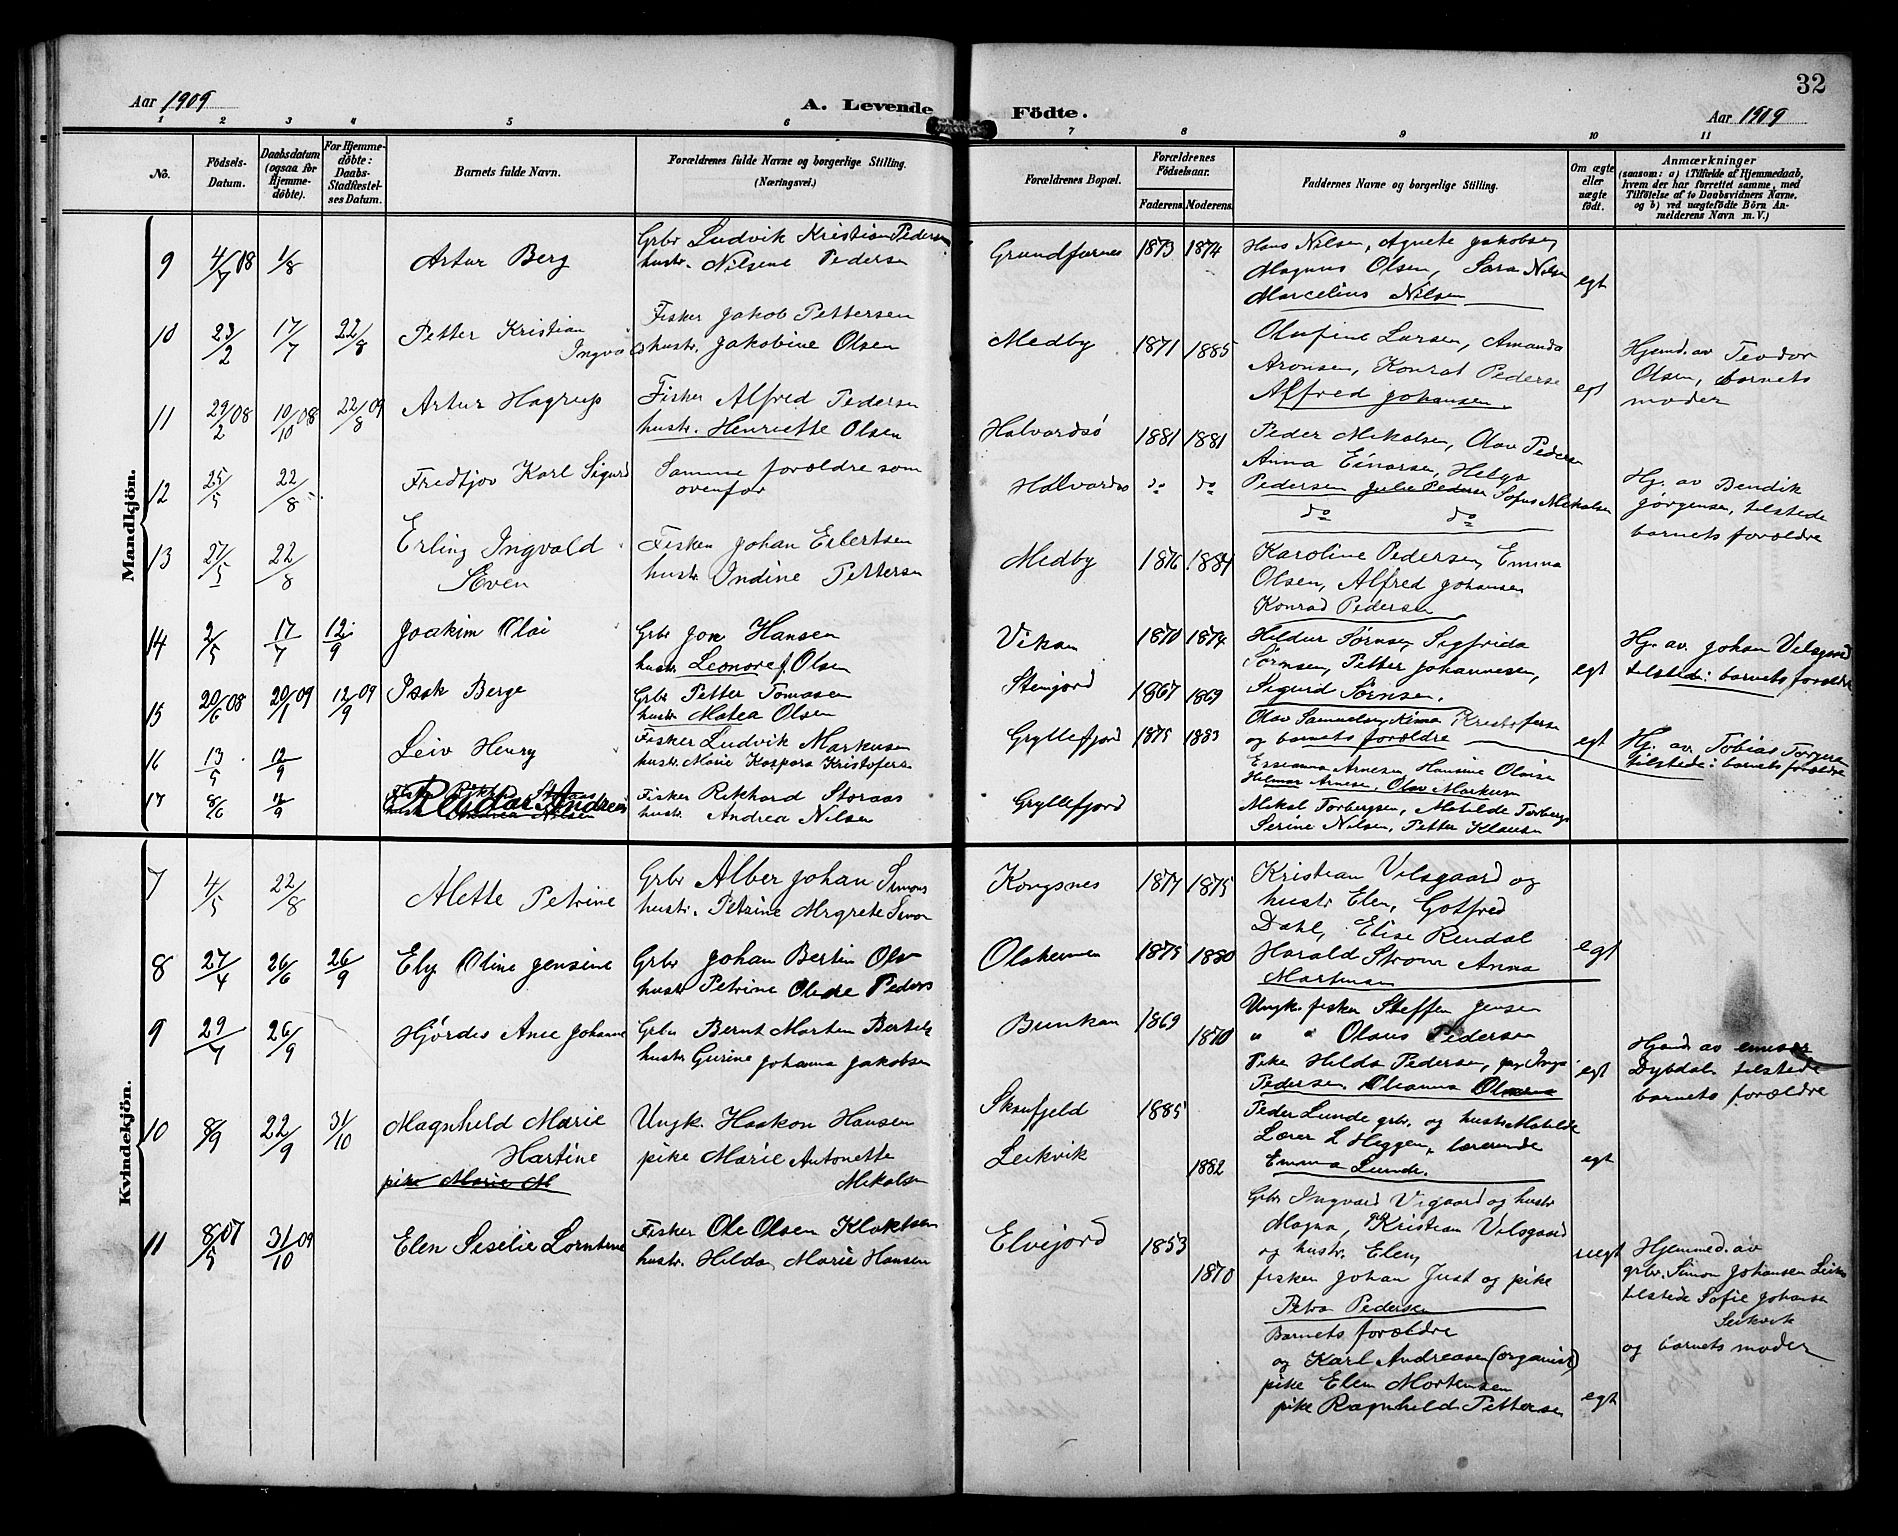 32
Aar 1909
A. Levende Födte.
Aar 1909
1 2 3 4 5 6 7 8 9 10 11
No.
Födsels-Datum.
Daabsdatum (ogsaa for Hjemme-döbte).
For Hjemme-döbte: Daabs-Stadfæstel-ses Datum.
Barnets fulde Navn.
Forældrenes fulde Navne og borgerlige Stilling. (Næringsvei.)
Forældrenes Bopæl.
Forældrenes Födselsaar.
Faderens. Moderens.
Faddernes Navne og borgerlige Stilling.
Om ægte eller uægte födt.
Anmærkninger
(saasom: a) i Tilfælde af Hjemmedaab,
hvem der har forrettet samme, med
Tilföielse af to Daabsvidners Navne,
og b) ved uægtefödte Börn An-
melderens Navn m. V.)
Mandkjön.
9 4/7 08 1/8 Artur Berg
Grbr Ludvik Kristian Pedersen
hustr. Nilsine Pedersn
1873 1874
Hans Nilsen, Agnete Jakobsen
Magnus Olsen, Sara Nilsn
Marcelius Nilsen
egt
10 23/2 17/7 22/8 Petter Kristian
Ingvald
Fisker Jakob Pettersen
hustr. Jakobine Olsen
Medby 1871 1885
Olufine Larsen, Amanda
Aronsen, Konrat Pederse
Alfred Johansen
egt
Hjemd. av Teodor
Olsen, barnets
moder
11 29/2 08 10/10 08 22/8 09 Artur Hagrup
Fisker Alfred Pedersen
hustr. Henriette Olsen
Halvardsö 1881 1881
Peder Mikalsen, Olav Pedersn
Anna Einarsen, Helga
Pedersen Julie Pedersn Sofus Mikalsen
12 25/5 22/8 Fredtjov Karl Sigurd
Samme forældre som
ovenfor
Halvardsö do do
do do
Hj. av Bendik
Jørgensen, tilstede
barnets forældre
13 27/5 22/8 Erling Ingvald
Søren
Fisker Johan Ebertsen
hustr Indine Pettersn
Medby 1876 1884
Karoline Pedersen, Emma
Olsen, Alfred Johansen
Konrad Pedersen
14 2/5 17/7 12/9 Joakim Olai
Grbr Jon Hansen
hustr. Leonore J. Olsen
Vikan 1870 1874
Hildur Sørnsen, Sigfrida
Sørnsen, Petter Johannesen,
Sigurd Sørnsen.
egt
Hj. av. Johan Vilsgaard
tilstede: barnets forældre
15 20/6 08 20/1 09 12/9 09 Isak Berge
Grbr Petter Tomasen
hustr Matea Olsen
Steinjord 1867 1869
Olav Samuelsen,
og barnets forældre
egt
Hj. av. Tobias
tilstede: barnets forældre
16 13/5 12/9 Leiv Henry
Fisker Ludvik Markusen
hustr. Marie Kaspara Kristofers
Gryllefjord 1875 1883
Arnesen, Hansine
Helmar Arnesen, Olav Markusn
17 8/6 12/9 Reidar Andreas
Fisker Rikhard Storaas
hustr. Andrea Nilsen
Gryllefjord
Mikal Torbergsen, Matilde Torbergs
Serine Nilsen, Petter Klausen
Kvindekjön.
7 4/5 22/8 Alette Petrine
Grbr Alber Johan Simons
hustr. Petrine Mrgrete Simon
Kongsnes 1877 1875
Kristian Vilsgaard og
hustr Elen, Gotfred
Dahl, Elise Rendal
8 27/4 26/6 26/9 Ely Oline Jensine
Grbr Johan Bertin Olsn
hustr Petrine Peders
1875 1880
Harald Strøm Anna
egt
9 29/7 26/9 Hjördis Ane Johanne
Grbr Bernt Morten Bertels
hustr Gurine Johanna Jakobsen
Bunkan 1869 1870
Ungk. fisker Steffen Jensen
" " Olaus Pedersen
Pike Hilda Pedersen, Inga
Pedersen
egt
Hjemd. av
Dybdal, tilstede
barnets forældre
10 8/9 22/9 31/10 Magnhild Marie
Hartine
pike Marie M
Ungk. Haakon Hansen
pike Marie Antonette
Mikalsen
Skaufjeld 1885
Leikvik 1882
Peder Lunde grbr. og hustr Matilde
Lærer L Heggen, lærerinde
Emma Lunde.
egt
11 8/5 07 31/10 09 Elen Siselie
Fisker Ole Olsen
hustr. Hilda Marie Hansen
Elvejord 1853 1870
Grbr Ingvard Vigaard og hustr
Magna, Kristian Vilsgaard
og hustr. Elen,
fisker Johan Just og pike
Petra Pedersen
uegt
Hjemmed. av
grbr. Simon Johansen
tilstede Sofie Johansen
Leikvik
og barnets moder
Barnets forældre
og Karl Andreasen (organist)
pike Elen Mortensen
pike Ragnhild Pettersen
egt